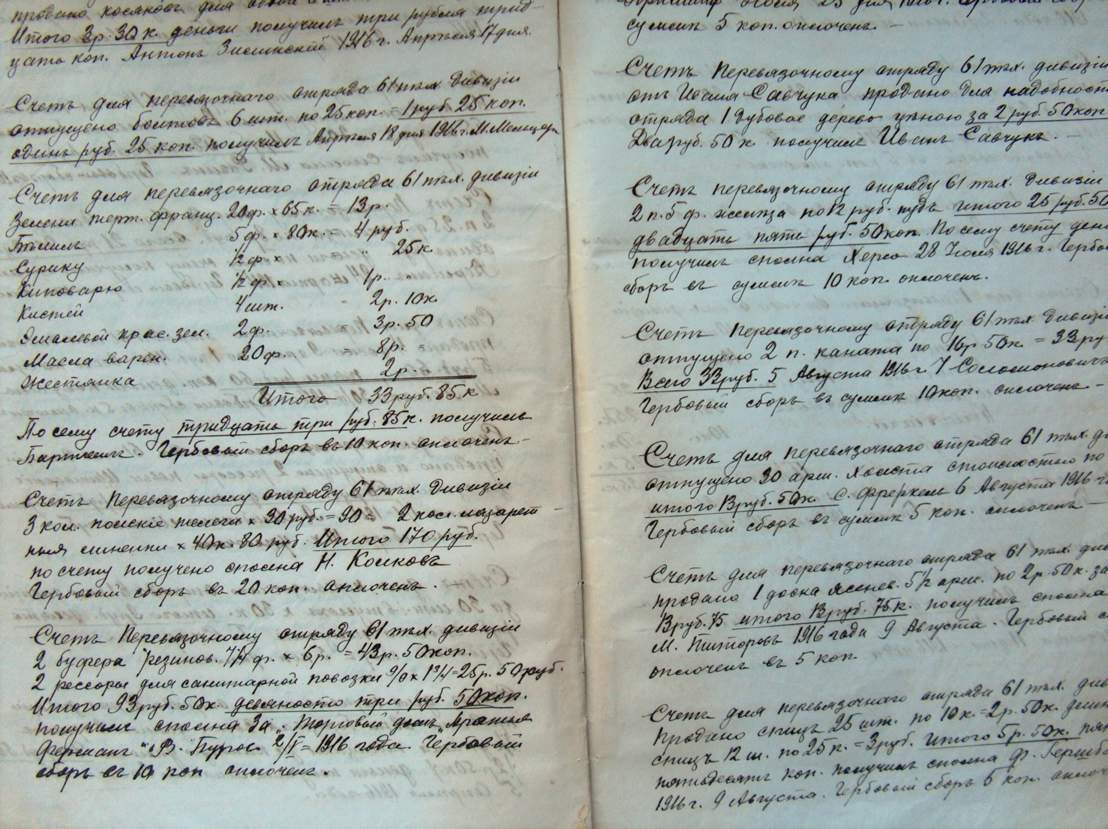 продано косяковъ для
Итого 3р. 30к. деньги получилъ три рубля трид-
цать коп. Антонъ 1916 г. Апрѣля 17 дня.
Счетъ для перевязочнаго отряда 61 пѣх. дивизіи
отпущено болтовъ 6 шт. по 25 коп. = 1 руб. 25 коп.
одинъ руб. 25 коп. получилъ Апрѣля 18 дня 1916 г. М.
Счетъ для перевязочнаго отряда 61 пѣх. дивизіи
Зелени терт. франц. 20 ф. х 65 к. - 13 р.
5 ф. х 80 к. = 4 руб.
Сурику ½ ф. х " 25 к.
Киноварю ½ ф. 1 р.
Кистей 4 шт. 2 р. 10 к
Эмалевой крас. зел. 2 ф. 3 р. 50
Масла варен. 20 ф. = 8 р. -
Жестянка 2 р. -
Итого 33 руб. 85 к
По сему счету тридцать три руб. 85 к. получилъ
Гербовый сборъ въ 10 коп. оплоченъ.
Счетъ Перевязочному отряду 61 пѣх. Дивизіи
3 кол. телеги х 30 руб. = 90 = 2 кол. лазарет-
ныя линейки х 40 к. 80 руб. Итого 170 руб.
по счету получено сполна Н. Косиковъ
Гербовый сборъ въ 20 коп. оплоченъ.
Счетъ Перевязочному отряду 61 пѣх. дивизіи
2 буфера резинов. 7¼ ф. х 6 р. = 43 р. 50 коп.
2 рессоры для санитарной повозки 25 р. 50 руб.
Итого 93 руб. 50 к. девяносто три руб. 50 коп.
получилъ сполна За "Торговый домъ
Ферманъ" В. 1916 года. Гербовый
сборъ въ 10 коп оплоченъ.
суммѣ 5 коп. оплоченъ -
Счетъ Перевязочному отряду 61 пѣх. дивизіи
отъ Ивана Савчука продано для надобност
отряда 1 дубовое дерево цѣною за 2 руб. 50 коп
Два руб. 50 к получилъ Иванъ Савчукъ.
Счетъ перевязочному отряду 61 пѣх. Дивизіи
2 п. 5 ф. по 12 руб. пудъ итого 25 руб. 50
двадцать пять руб. 50 коп. По сему счету день
получилъ сполна 28 Іюля 1916 г. Гербов
сборъ въ суммѣ 10 коп. оплоченъ.
Счетъ Перевязочному отряду 61 пѣх. Дивизі
отпущено 2 п. каната по 16 р. 50 к. = 33 ру
Всего 33 руб. 5 Августа 1916 г
Гербовый сборъ въ суммѣ 10 коп. оплочена -
Счетъ для перевязочнаго отряда 61 пѣх. д
отпущено 30 арш. стоимостью по
итого 13 руб. 50 к. С. 6 Августа 1916 г.
Гербовый сборъ въ суммѣ 5 коп. оплочена -
Счетъ для перевязочнаго отряда 61 пѣх. ди
продано 1 доска Ясенев. 5½ арш. по 2 р. 50 к. за
13 руб. 75 итого 13 руб. 75 к. получилъ сполна
М. 1916 года 9 Августа. Гербовый с
оплоченъ въ 5 коп.
Счетъ для перевязочнаго отряда 61 пѣх. див
Продано спицъ 25 шт. по 10 к. = 2 р. 50 к.
спицъ 12 ш. по 25 к. = 3 руб. Итого 5 р. 50 к. пят
пятьдесятъ коп. получилъ сполна Ф.
1916 г. 9 Августа. Гербовый сборъ 5 коп. оплоч